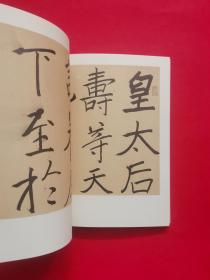 皇太后
壽等天
下至於